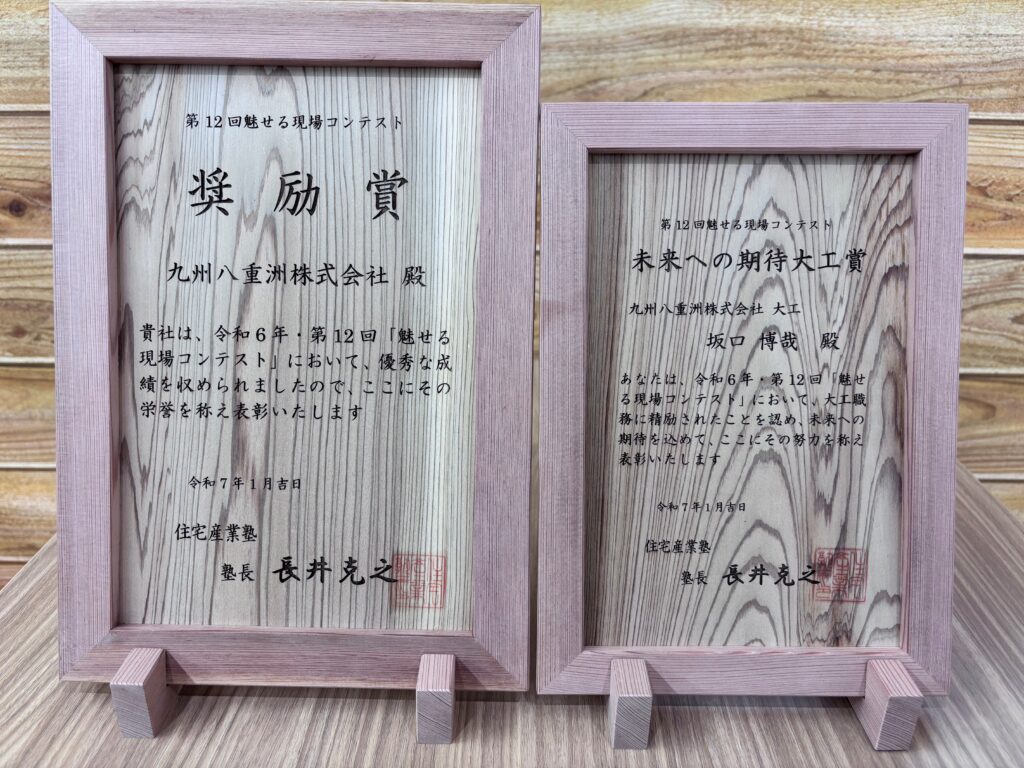 第12回魅せる現場コンテスト
奨励賞
九州八重洲株式会社 殿
貴社は、令和6年・第12回「魅せる
現場コンテスト」において、優秀な成
績を収められましたので、ここにその
栄誉を称え表彰いたします
令和7年1月吉日
住宅産業塾
塾長 長井克之
第12回魅せる現場コンテスト
未来への期待大工賞
九州八重洲株式会社 大工
坂口 博哉 殿
あなたは、令和6年・第12回「魅せ
る現場コンテスト」において、大工職
務に精励されたことを認め、未来への
期待を込めて、ここにその努力を称え
表彰いたします
令和7年1月吉日
住宅産業塾
塾長 長井克之